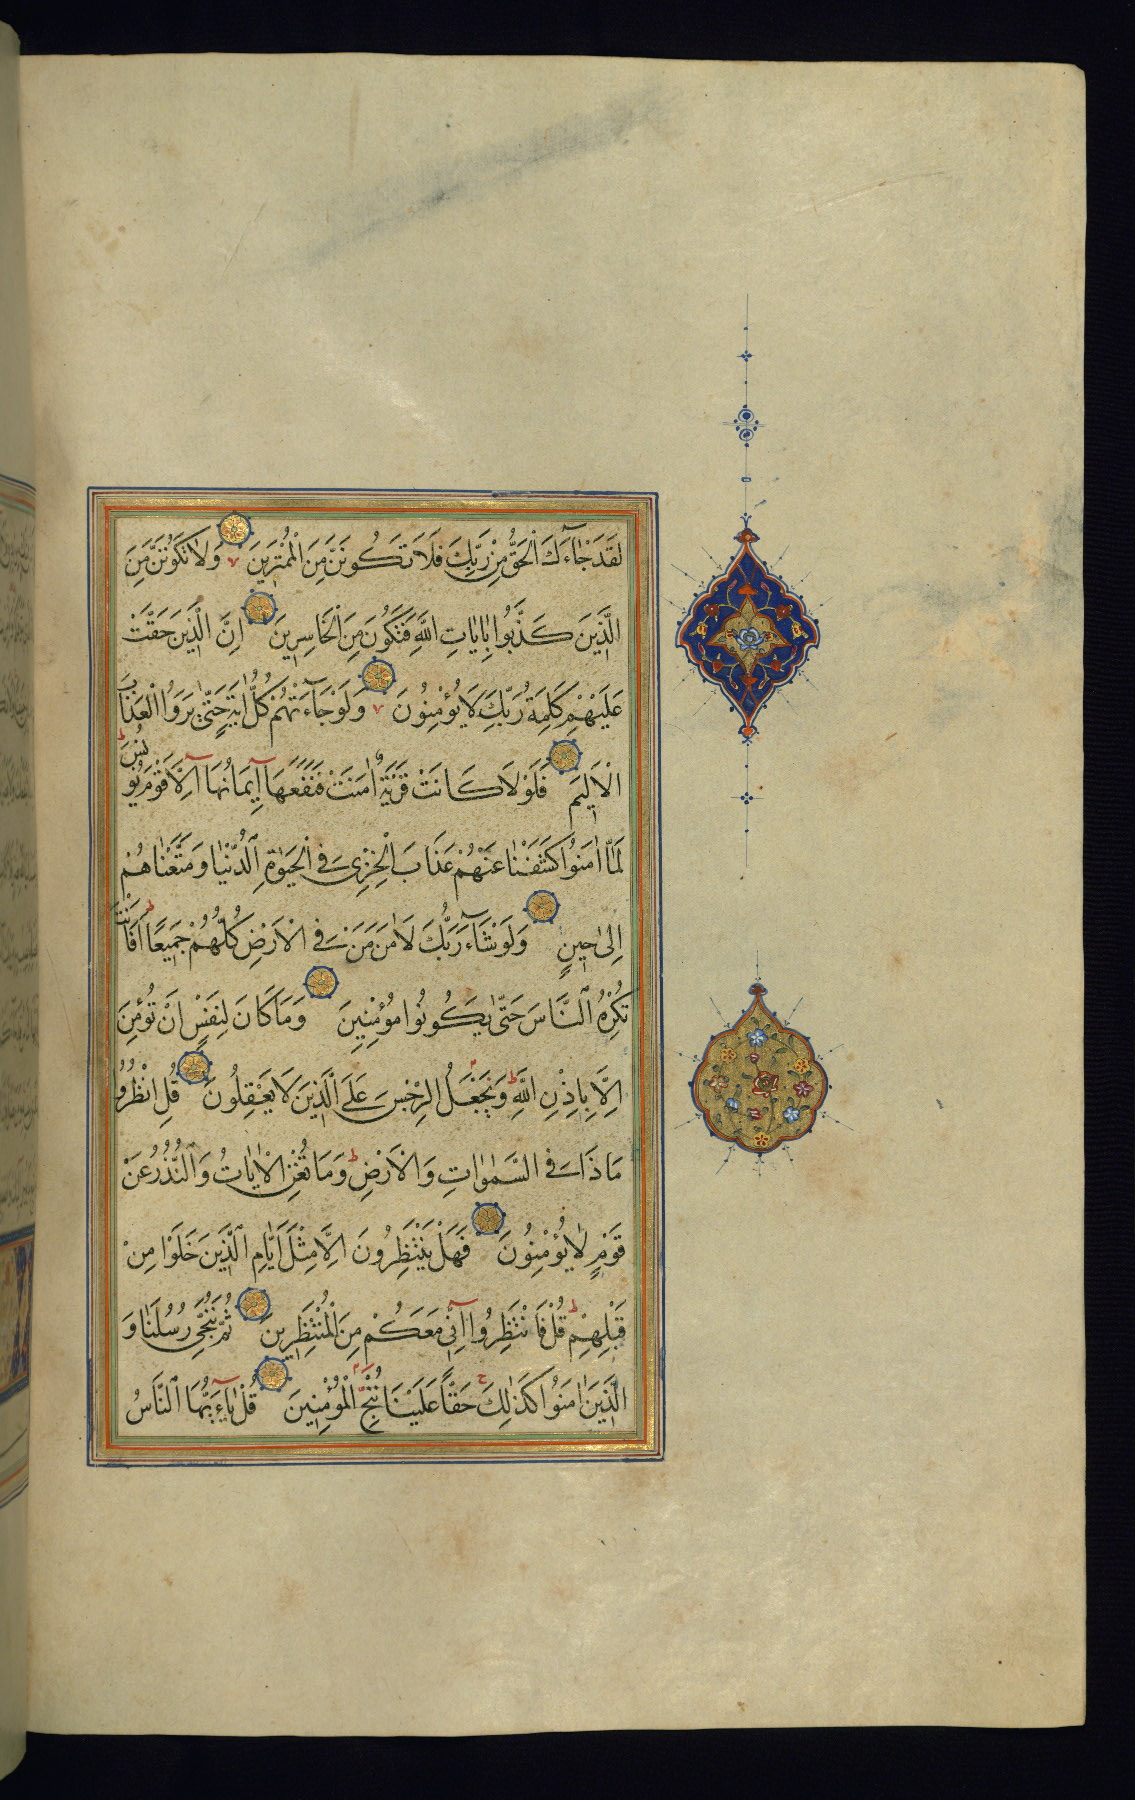 لَقَدْ جَاءَكَ الْحَقُّ مِنْ رَبِّكَ فَلَا تَكُونَنَّ مِنَ الْمُمْتَرِينَ وَلَا تَكُونَنَّ مِنَ
الَّذِينَ كَذَّبُوا بِاٰيَاتِ اللّٰهِ فَتَكُونَ مِنَ الْخَاسِرِينَ اِنَّ الَّذِينَ حَقَّتْ
عَلَيْهِمْ كَلِمَةُ رَبِّكَ لَا يُؤْمِنُونَ وَلَوْ جَاءَتْهُمْ كُلُّ اٰيَةٍ حَتّٰى يَرَوُا الْعَذَابَ
الْاَلِيمَ فَلَوْلَا كَانَتْ قَرْيَةٌ اٰمَنَتْ فَنَفَعَهَا اِيمَانُهَا اِلَّا قَوْمَ يُونُسَ
لَمَّا اٰمَنُوا كَشَفْنَا عَنْهُمْ عَذَابَ الْخِزْىِ فِى الْحَيٰوةِ الدُّنْيَا وَمَتَّعْنَاهُمْ
اِلٰى حِينٍ وَلَوْ شَاءَ رَبُّكَ لَاٰمَنَ مَنْ فِى الْاَرْضِ كُلُّهُمْ جَمِيعًا اَفَاَنْتَ
تُكْرِهُ النَّاسَ حَتّٰى يَكُونُوا مُؤْمِنِينَ وَمَا كَانَ لِنَفْسٍ اَنْ تُؤْمِنَ
اِلَّا بِاِذْنِ اللّٰهِ وَيَجْعَلُ الرِّجْسَ عَلَى الَّذِينَ لَا يَعْقِلُونَ قُلِ انْظُرُوا
مَاذَا فِى السَّمٰوَاتِ وَالْاَرْضِ وَمَا تُغْنِى الْاٰيَاتُ وَالنُّذُرُ عَنْ
قَوْمٍ لَا يُؤْمِنُونَ فَهَلْ يَنْتَظِرُونَ اِلَّا مِثْلَ اَيَّامِ الَّذِينَ خَلَوْا مِنْ
قَبْلِهِمْ قُلْ فَانْتَظِرُوا اِنِّى مَعَكُمْ مِنَ الْمُنْتَظِرِينَ ثُمَّ نُنَجِّى رُسُلَنَا وَ
الَّذِينَ اٰمَنُوا كَذٰلِكَ حَقًّا عَلَيْنَا نُنْجِ الْمُؤْمِنِينَ قُلْ يَاءَيُّهَا النَّاسُ